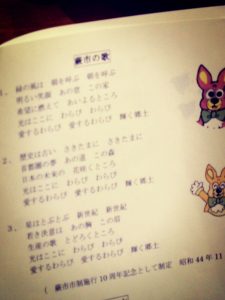 蕨市の歌
1. 緑の風は 朝を呼ぶ 朝を呼ぶ
明るい笑顔 あの窓 この家
希望に燃えて あいよるところ
光はここに わらび わらび
愛するわらび 愛するわらび 輝く郷土
2. 歴史は古い さきたまに さきたまに
首都圏の夢 あの道 この森
日本の未来の 花咲くところ
光はここに わらび わらび
愛するわらび 愛するわらび 輝く郷土
3. 星はとぶとぶ 新世紀 新世紀
若き決意は あの胸 この眉
生産の歌 とどろくところ
光はここに わらび わらび
愛するわらび 愛するわらび 輝く郷土
( 蕨市市制施行10周年記念として制定 昭和44年11